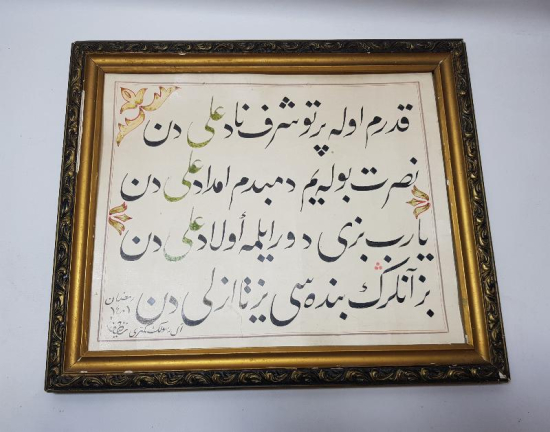 قدرم اوله پرتو شرف ناد علی دن
نصرت بوله یم دمبدم امداد علی دن
یارب بزی دور ایلمه أولاد علی دن
بز آنلرڭ بنده سی یز تا ازلی دن
رمضان